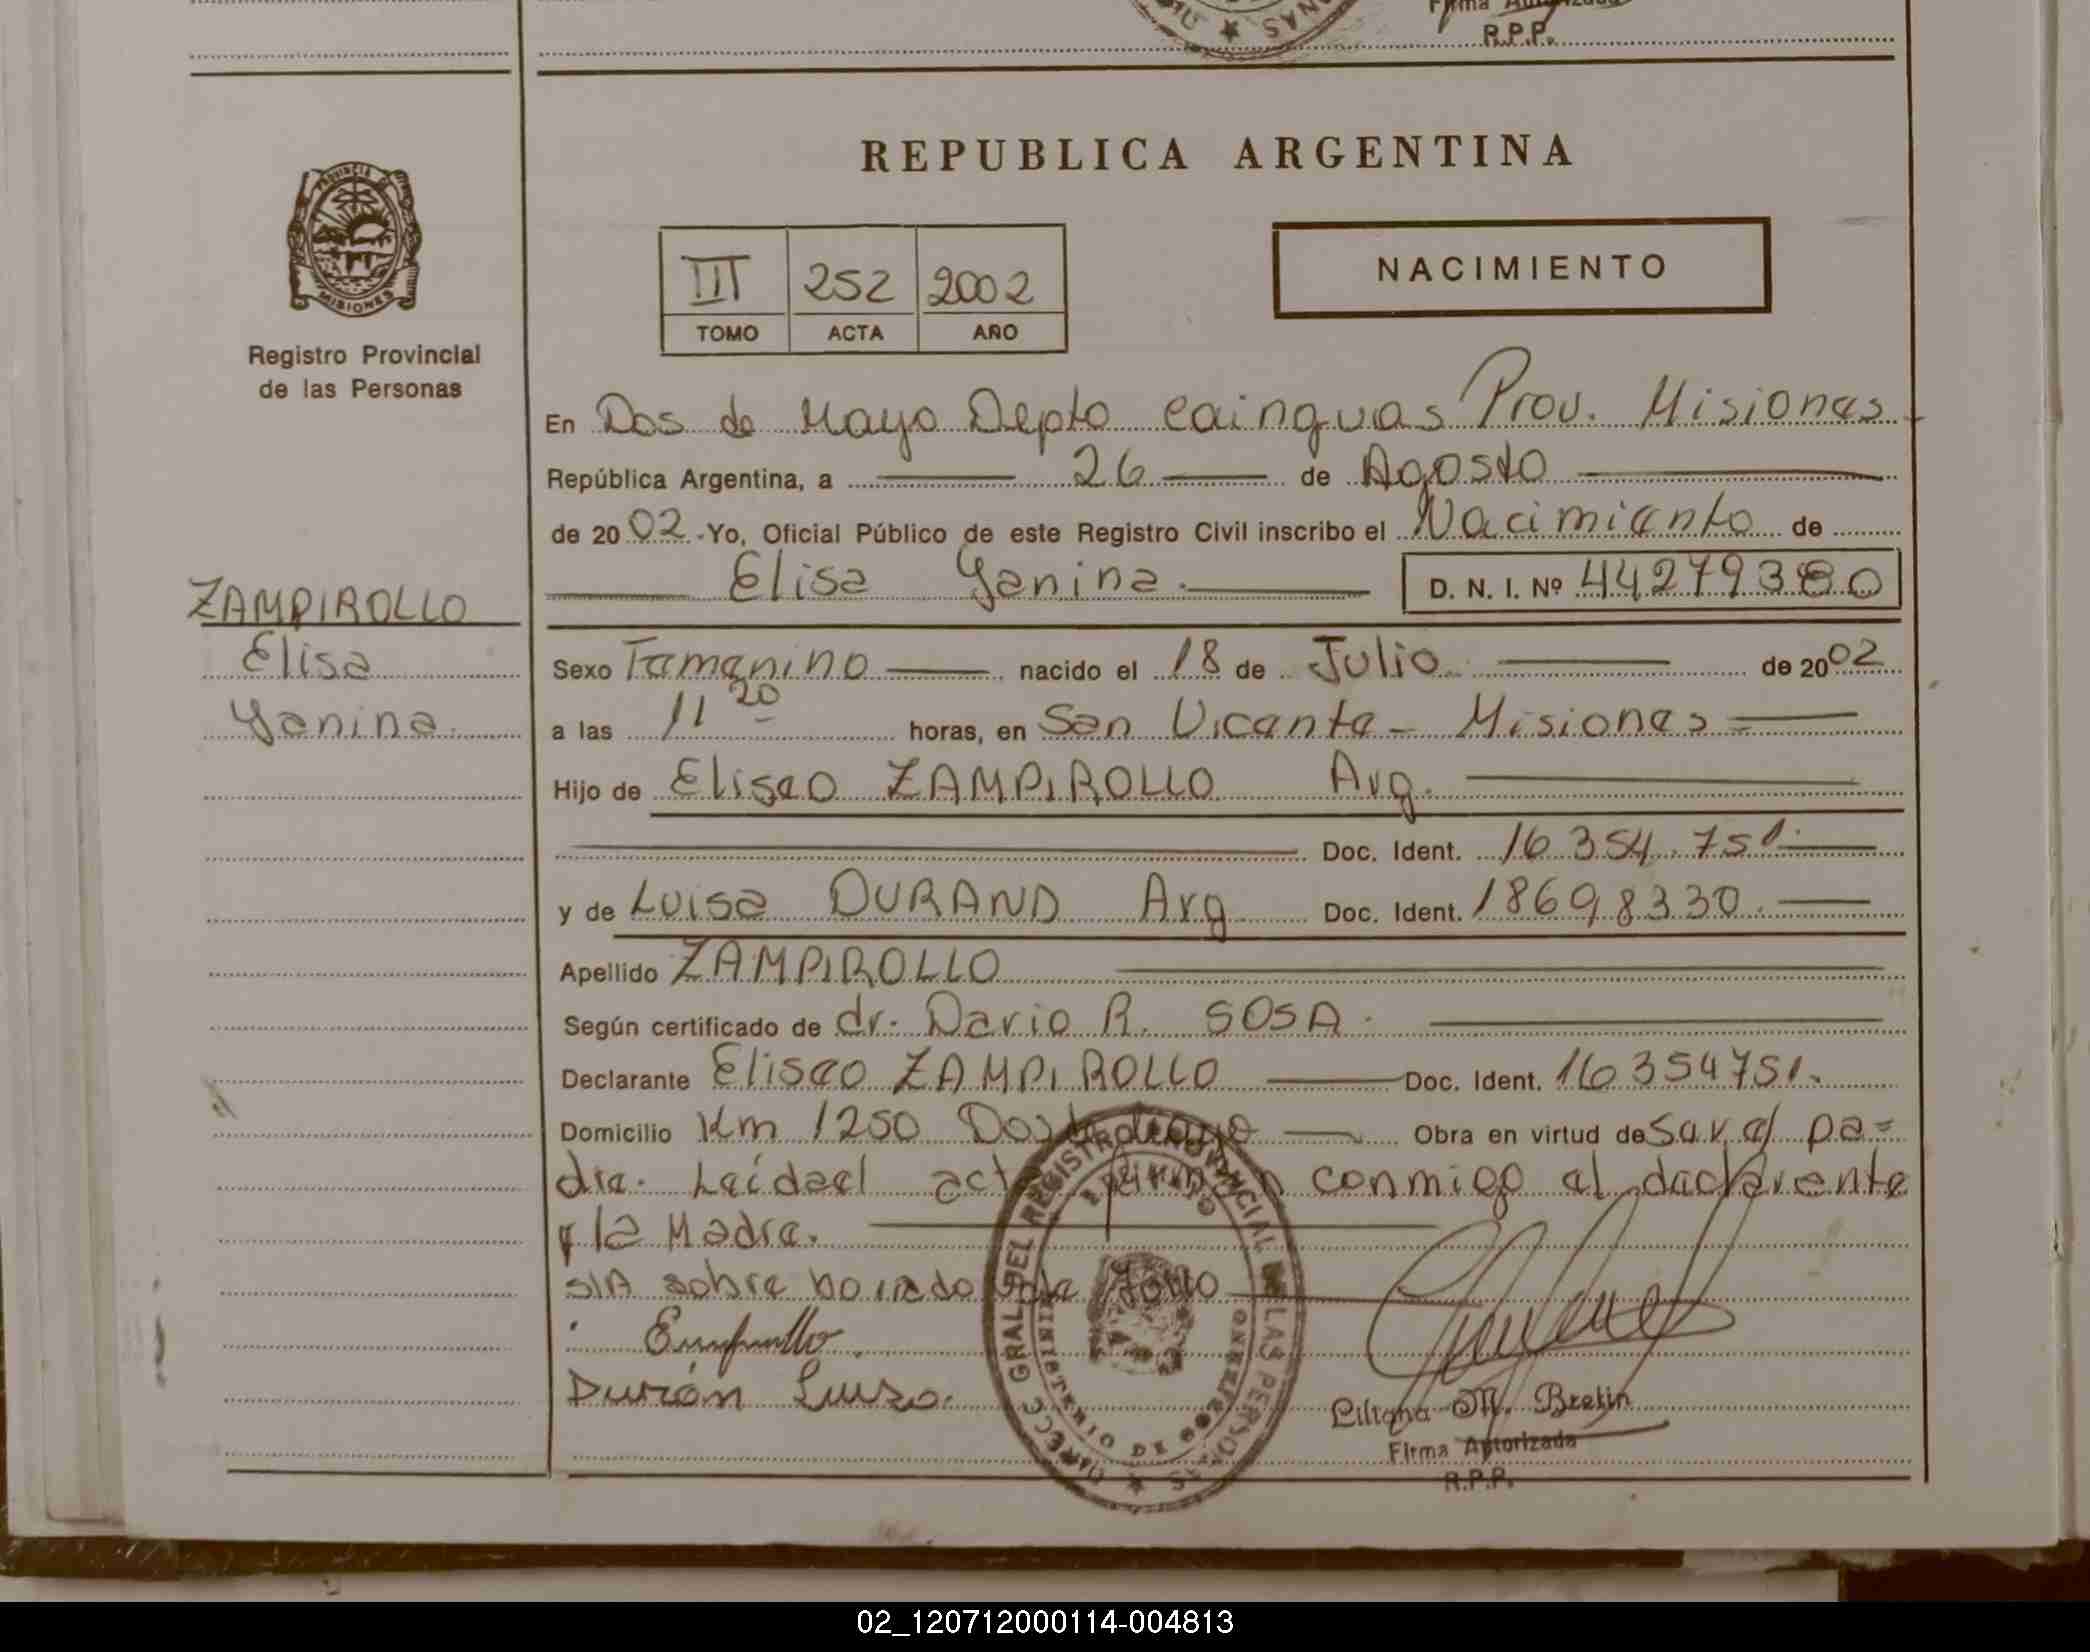 Firma Autorizada
R.P.P.
REPUBLICA ARGENTINA
PROVINCIA DE
MISIONES
Registro Provincial
de las Personas
III 252 2002
TOMO ACTA AÑO
NACIMIENTO
En Dos de Mayo Depto Cainguas Prov. Misiones
República Argentina, a 26 de Agosto
de 2002.-Yo, Oficial Público de este Registro Civil inscribo el Nacimiento de
Elisa Yanina. D. N. I. Nº 44279380
ZAMPIROLLO
Elisa
Yanina.
Sexo Femenino nacido el 18 de Julio de 2002
a las 11 20 horas, en San Vicente - Misiones
Hijo de Eliseo ZAMPIROLLO Arg.
Doc. Ident. 16.354.751.
y de Luisa DURAND Arg Doc. Ident. 18698330.
Apellido ZAMPIROLLO
Según certificado de dr. Dario R. SOSA.
Declarante Eliseo ZAMPIROLLO Doc. Ident. 16354751.
Domicilio Km 1250 Dos de Mayo Obra en virtud de ser el pa=
dre. Leída el acta firman conmigo el declarente
y la Madre.
S/A sobre borrado
Durán Luiza.
Liliana M. Bretin
Firma Autorizada
R.P.P.
02_120712000114-004813